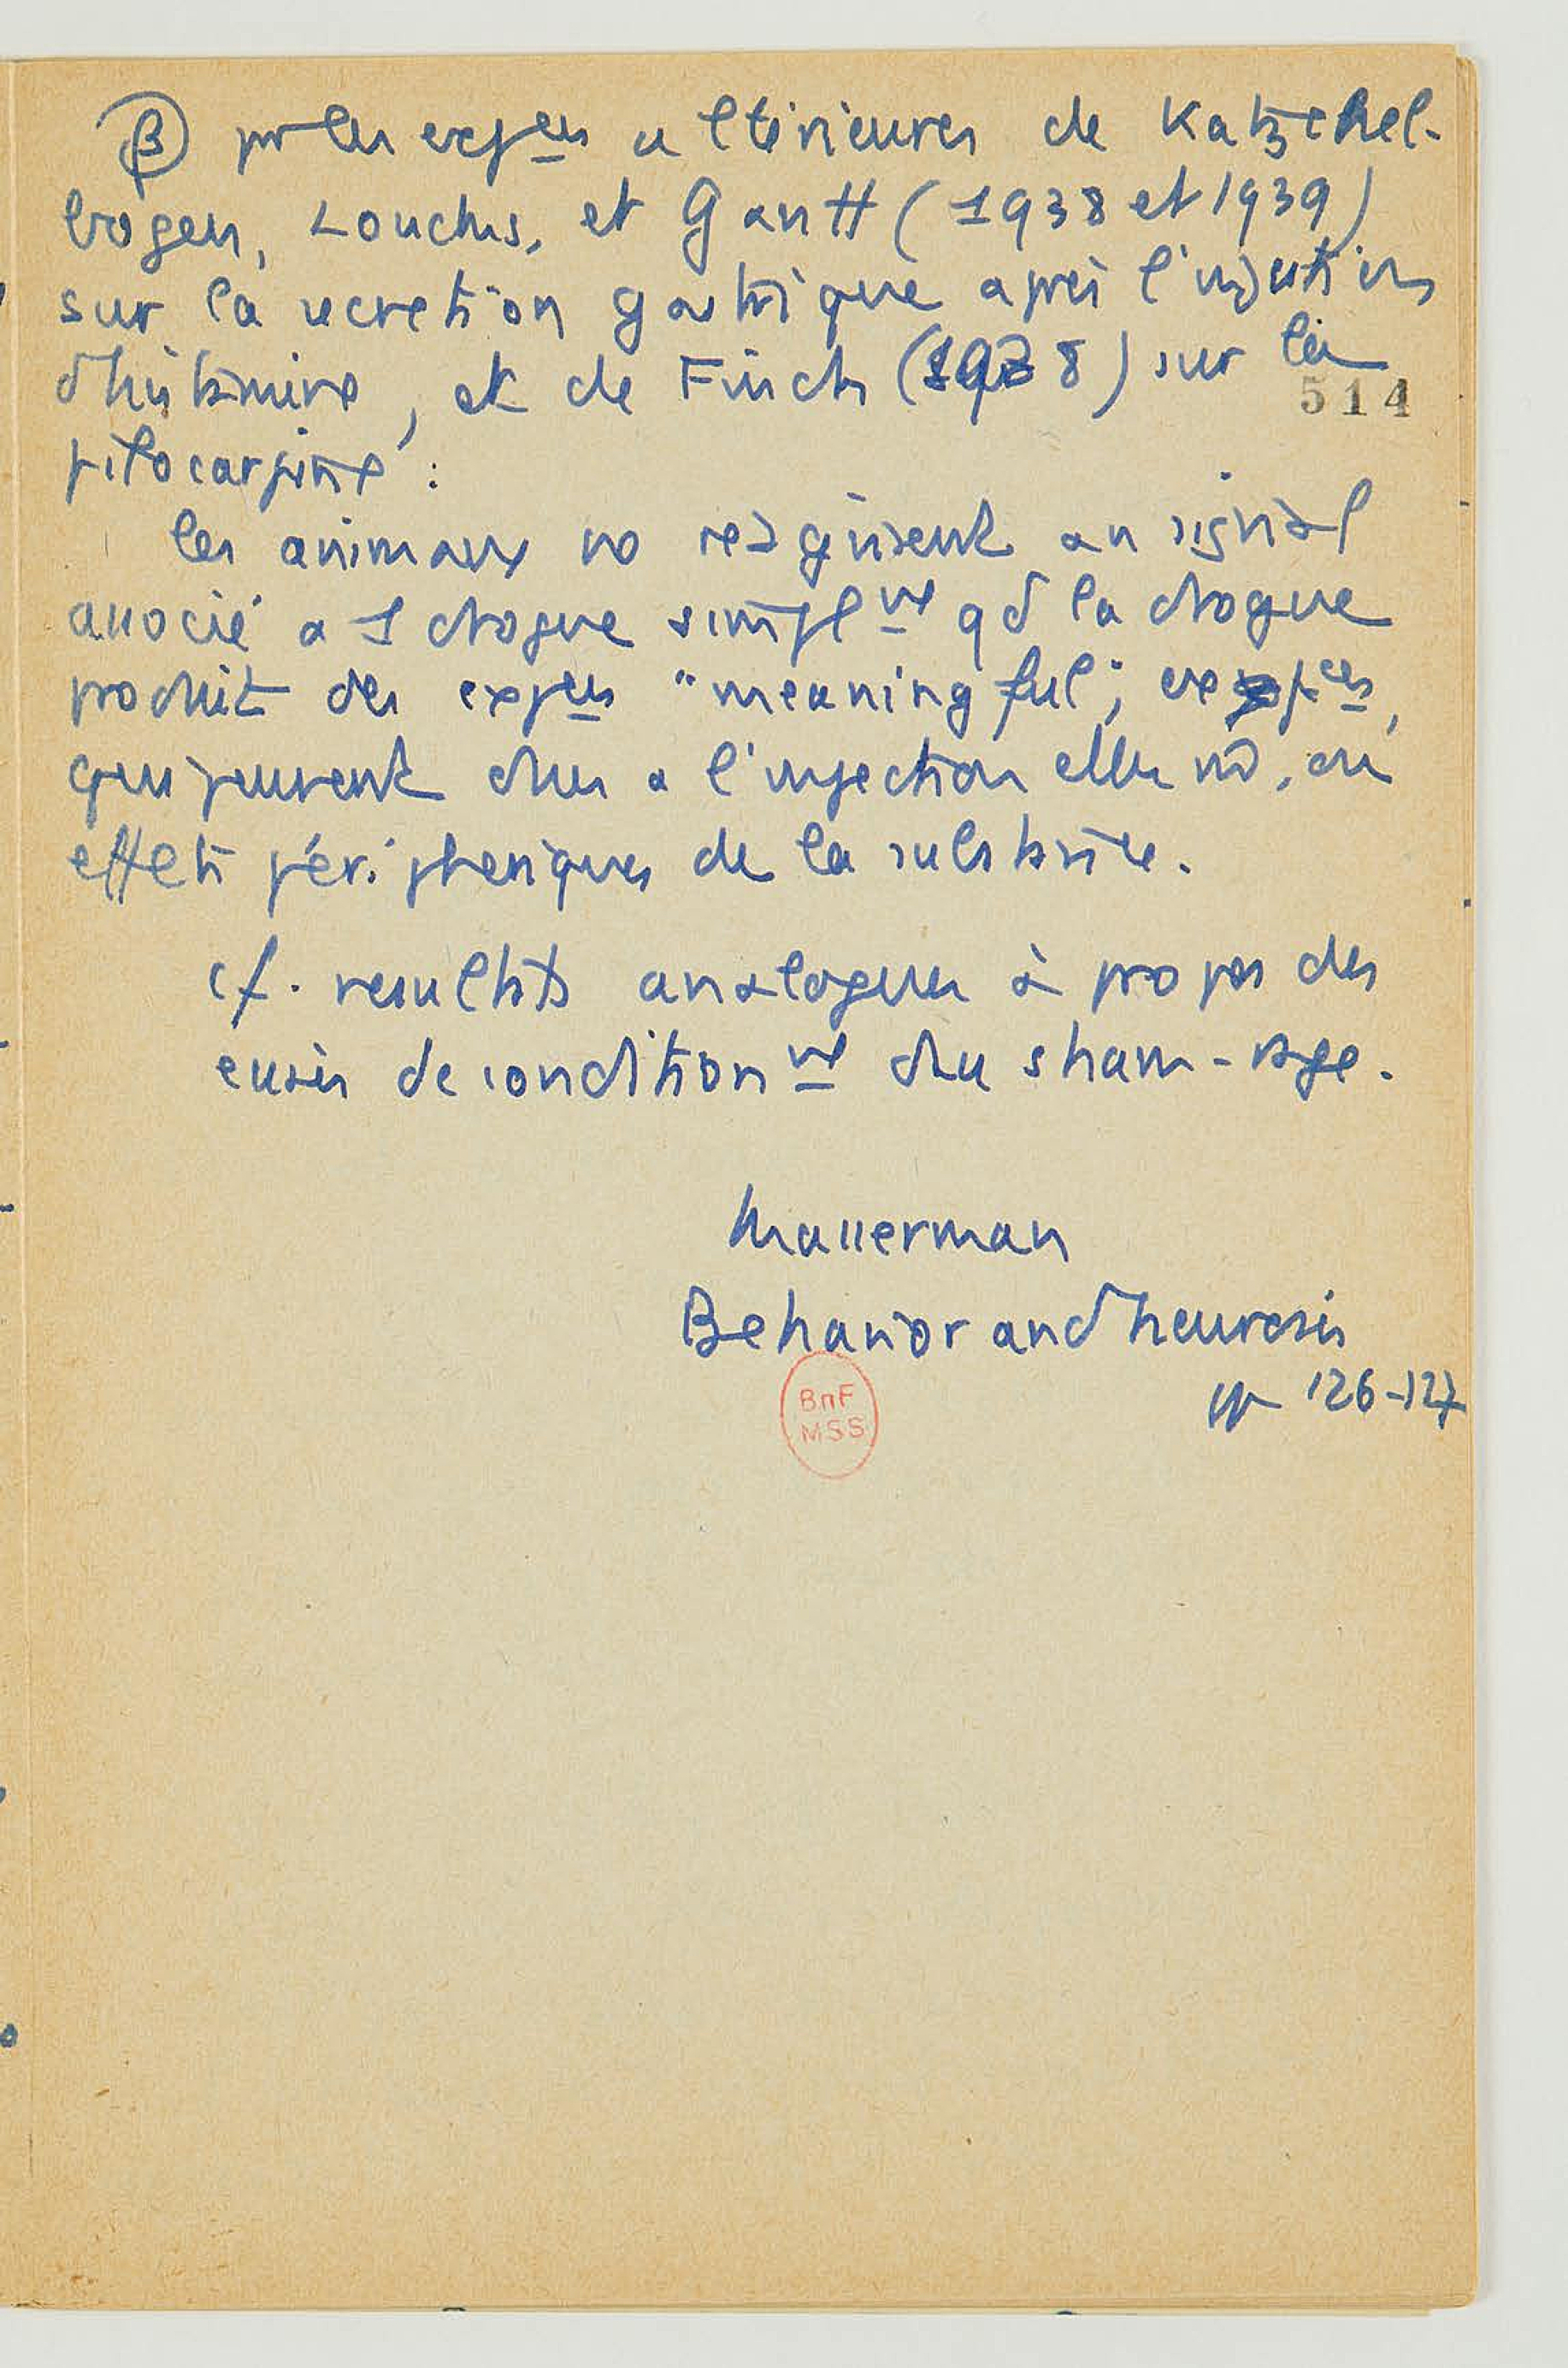 β par les exp^ces ultérieures de Katzenel-
bogen, Loucks, et Gantt (1938 et 1939)
sur la secretion gastrique après l'injection
d'histamine, et de Finch (1938) sur la
514
pilocarpine :
les animaux ne réagissent au signal
associé a 1 drogue simpl^nt qd la drogue
produit des exp^ces "meaningful"; exp^ces,
qui peuvent dues a l'injection elle m̂, ou
effets périphériques de la substance.
cf. resultats analogues à propos des
essais de condition^nt du sham-rage.
Masserman
Behavior and neurosis
pp 126-127
BnF
MSS